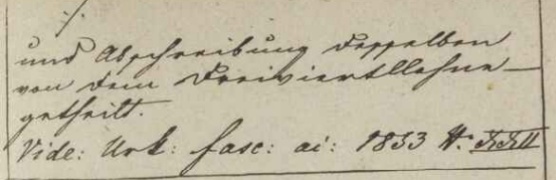 und Abschreibung desselben
von dem Dreiviertllehne
getheilt.
Vide: Urk: fasc: ai: 1833 N: